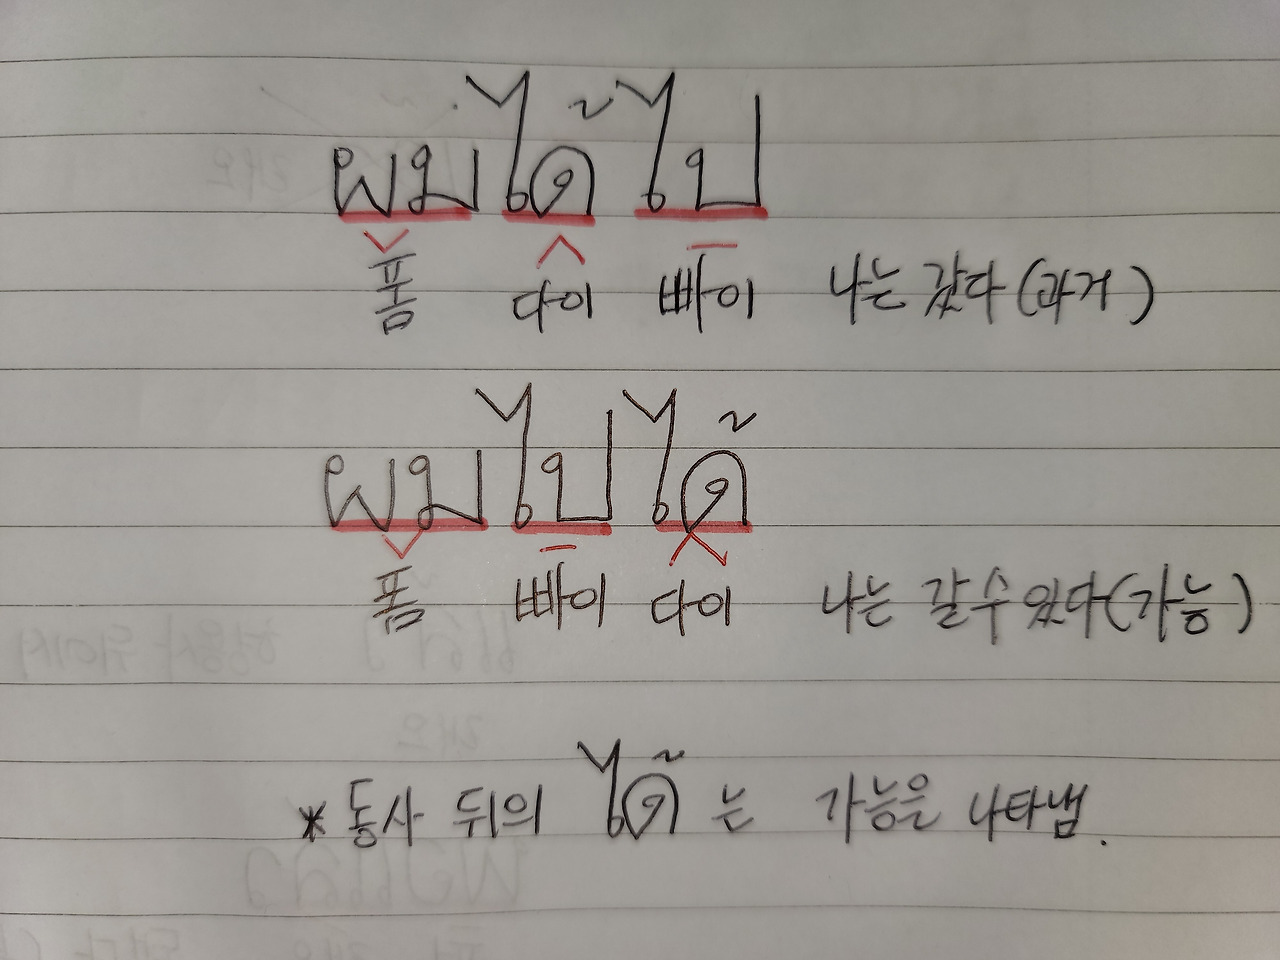 ผมได้ไป
폼 다이 빠이 나는 갔다 (과거)
ผมไปได้
폼 빠이 다이 나는 갈 수 있다 (가능)
* 동사 뒤의 ได้ 는 가능을 나타냄.